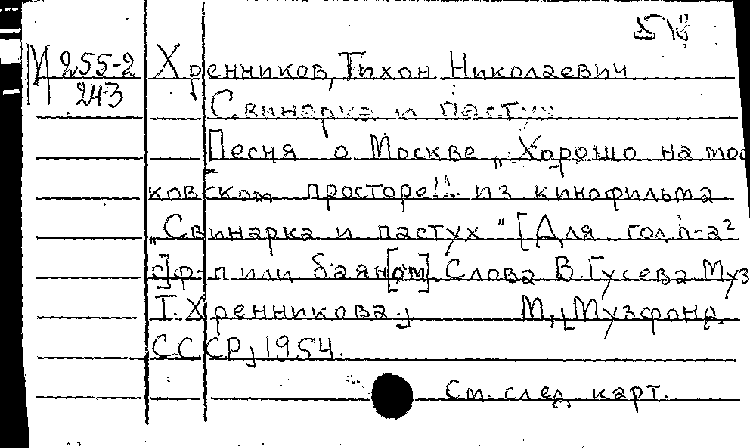 М 255-2 Хренников, Тихон Николаевич
243 Свинарка и пастух
Песня о Москве „Хорошо на мос
ковском просторе!.." из кинофильма
„Свинарка и пастух" [Для гол
с] ф-п или баян[ом]. Слова В. Гусева Муз
Т. Хренникова.
М., Музфонд
СССР, 1954.
См. след. карт.